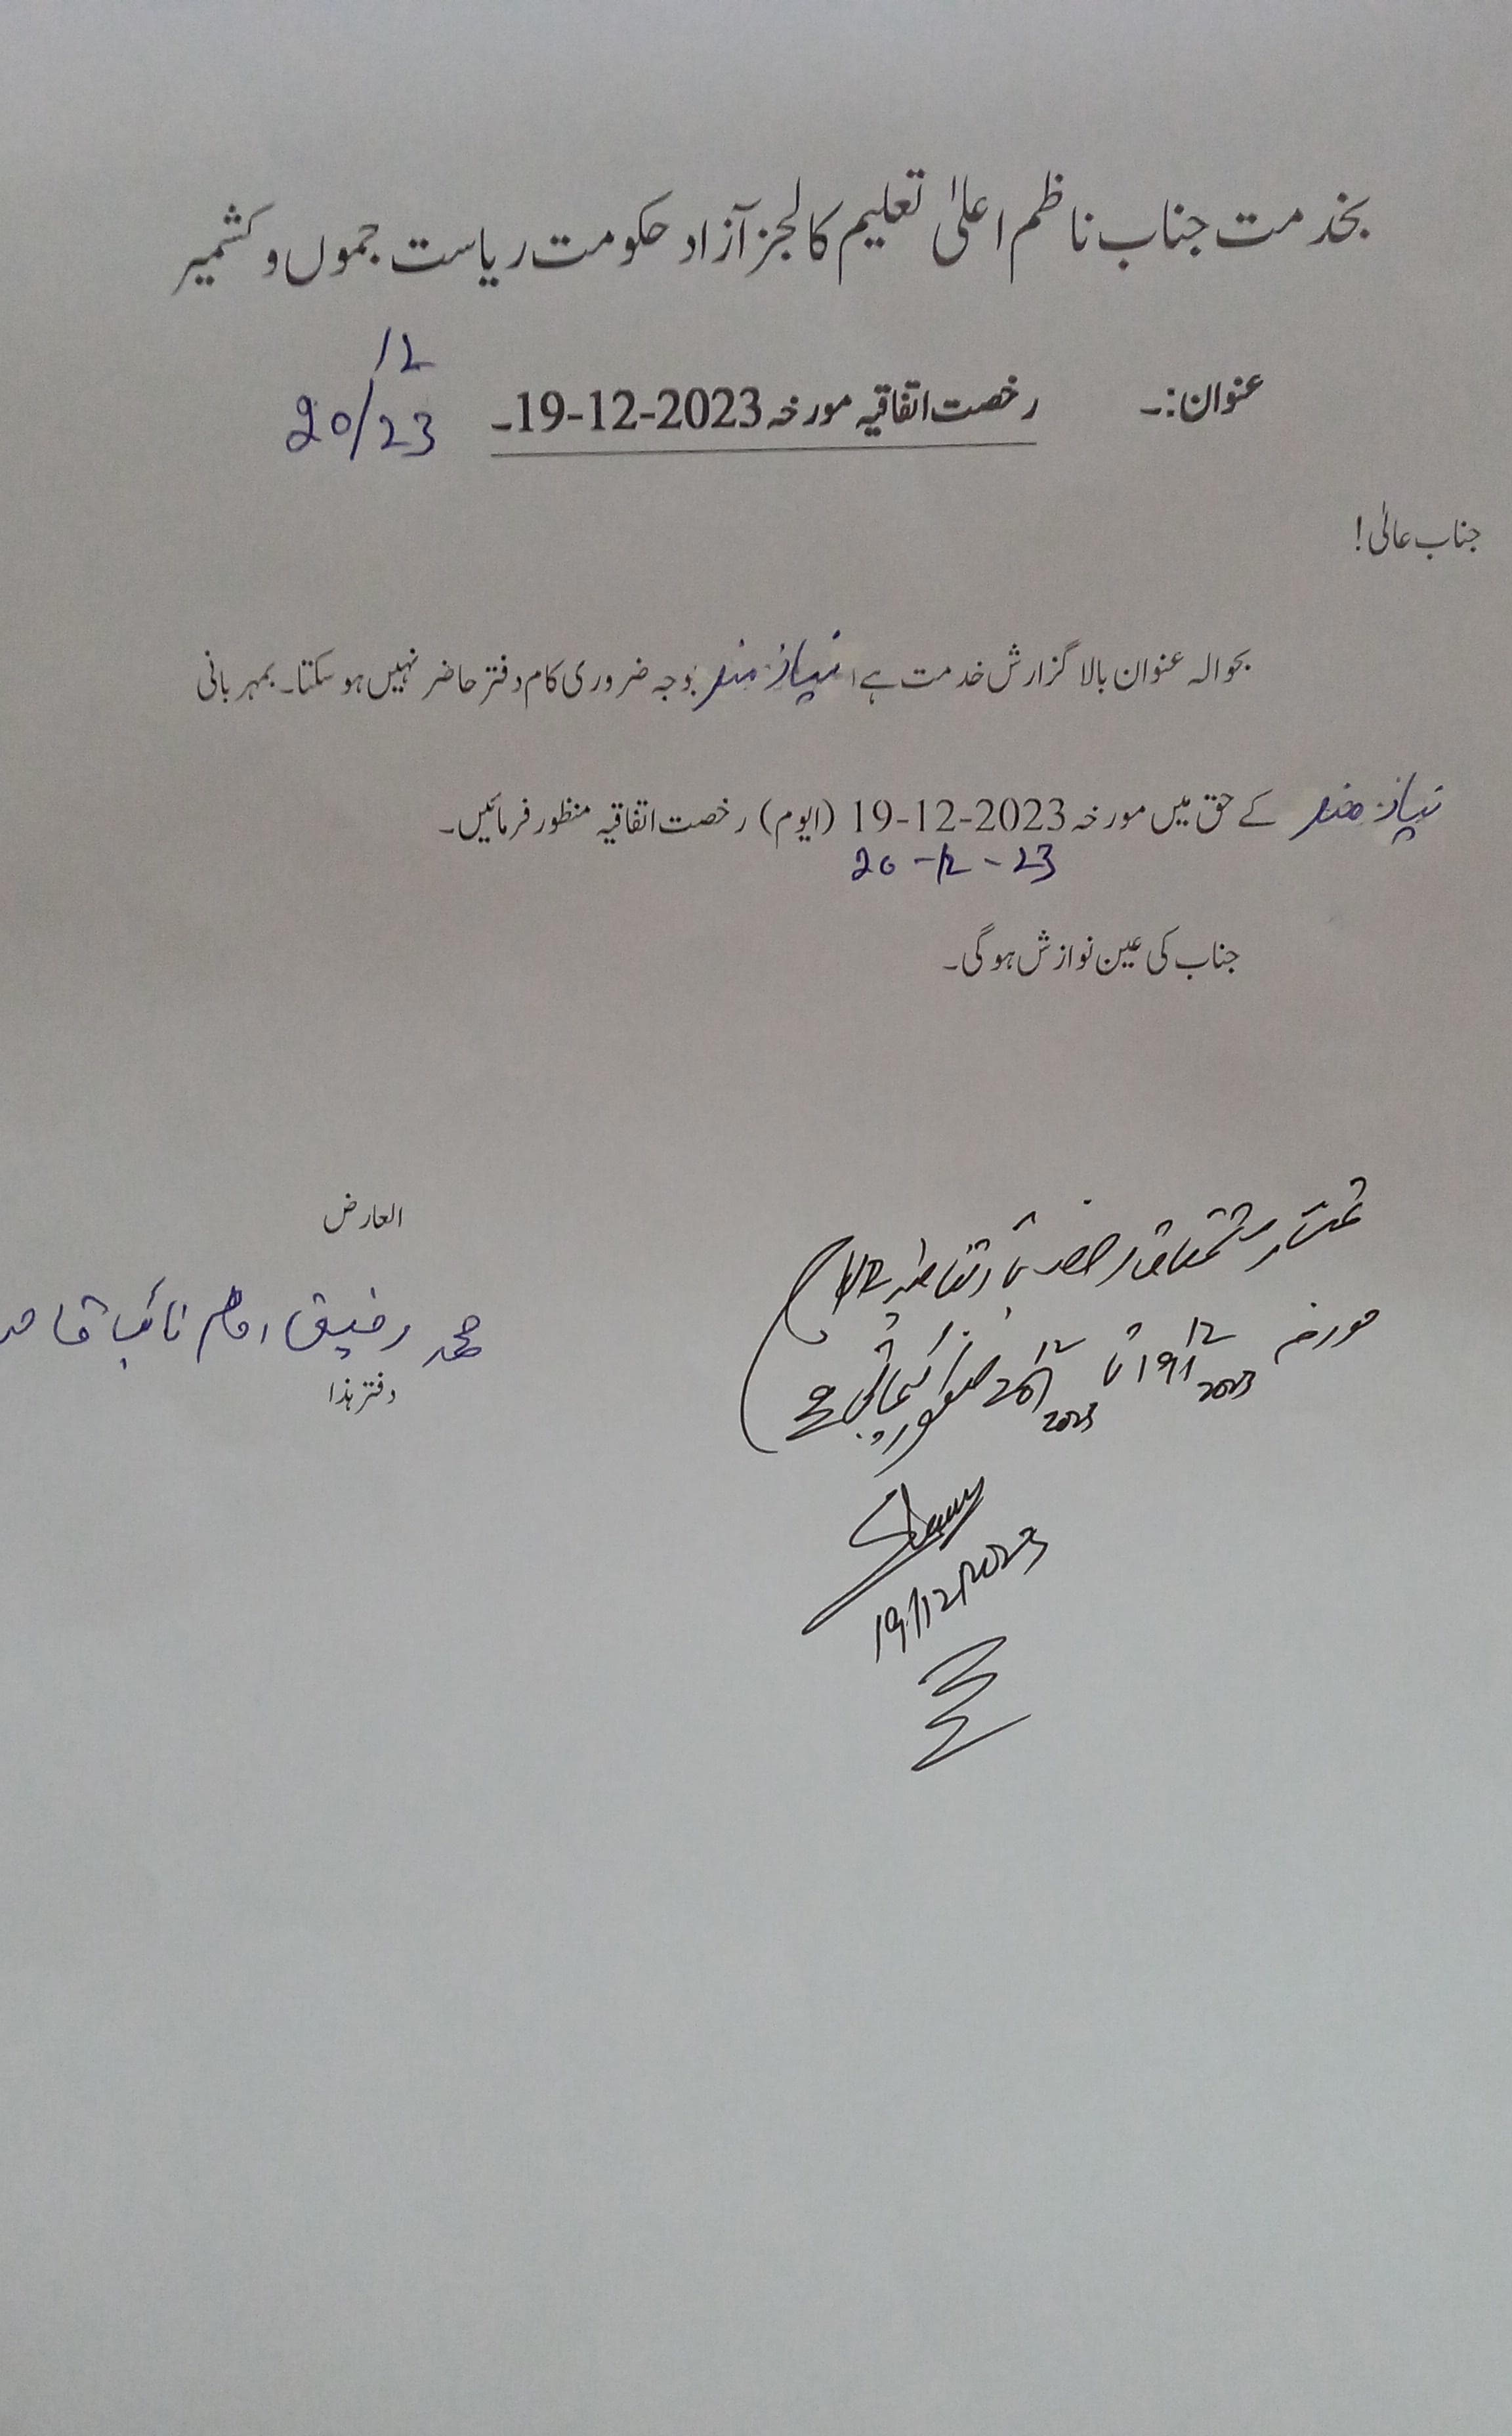 بخدمت جناب ناظم اعلیٰ تعلیم کالجز آزاد حکومت ریاست جموں و کشمیر
عنوان:۔ رخصت اتفاقیہ مورخہ 19-12-2023۔ 20/12/23
جناب عالی!
بحوالہ عنوان بالا گزارش خدمت ہے نیاز مند بوجہ ضروری کام دفتر حاضر نہیں ہو سکتا۔ بمہربانی
نیاز مند کے حق میں مورخہ 19-12-2023 (ایوم) رخصت اتفاقیہ منظور فرمائیں۔
20-12-23
جناب کی عین نوازش ہوگی۔
العارض
محمد رفیق نائب قاصد
دفتر ہذا
رخصت
مورخہ 19/12/2023 تا 20/12/2023 منظور کی جاتی ہے
19/12/2023